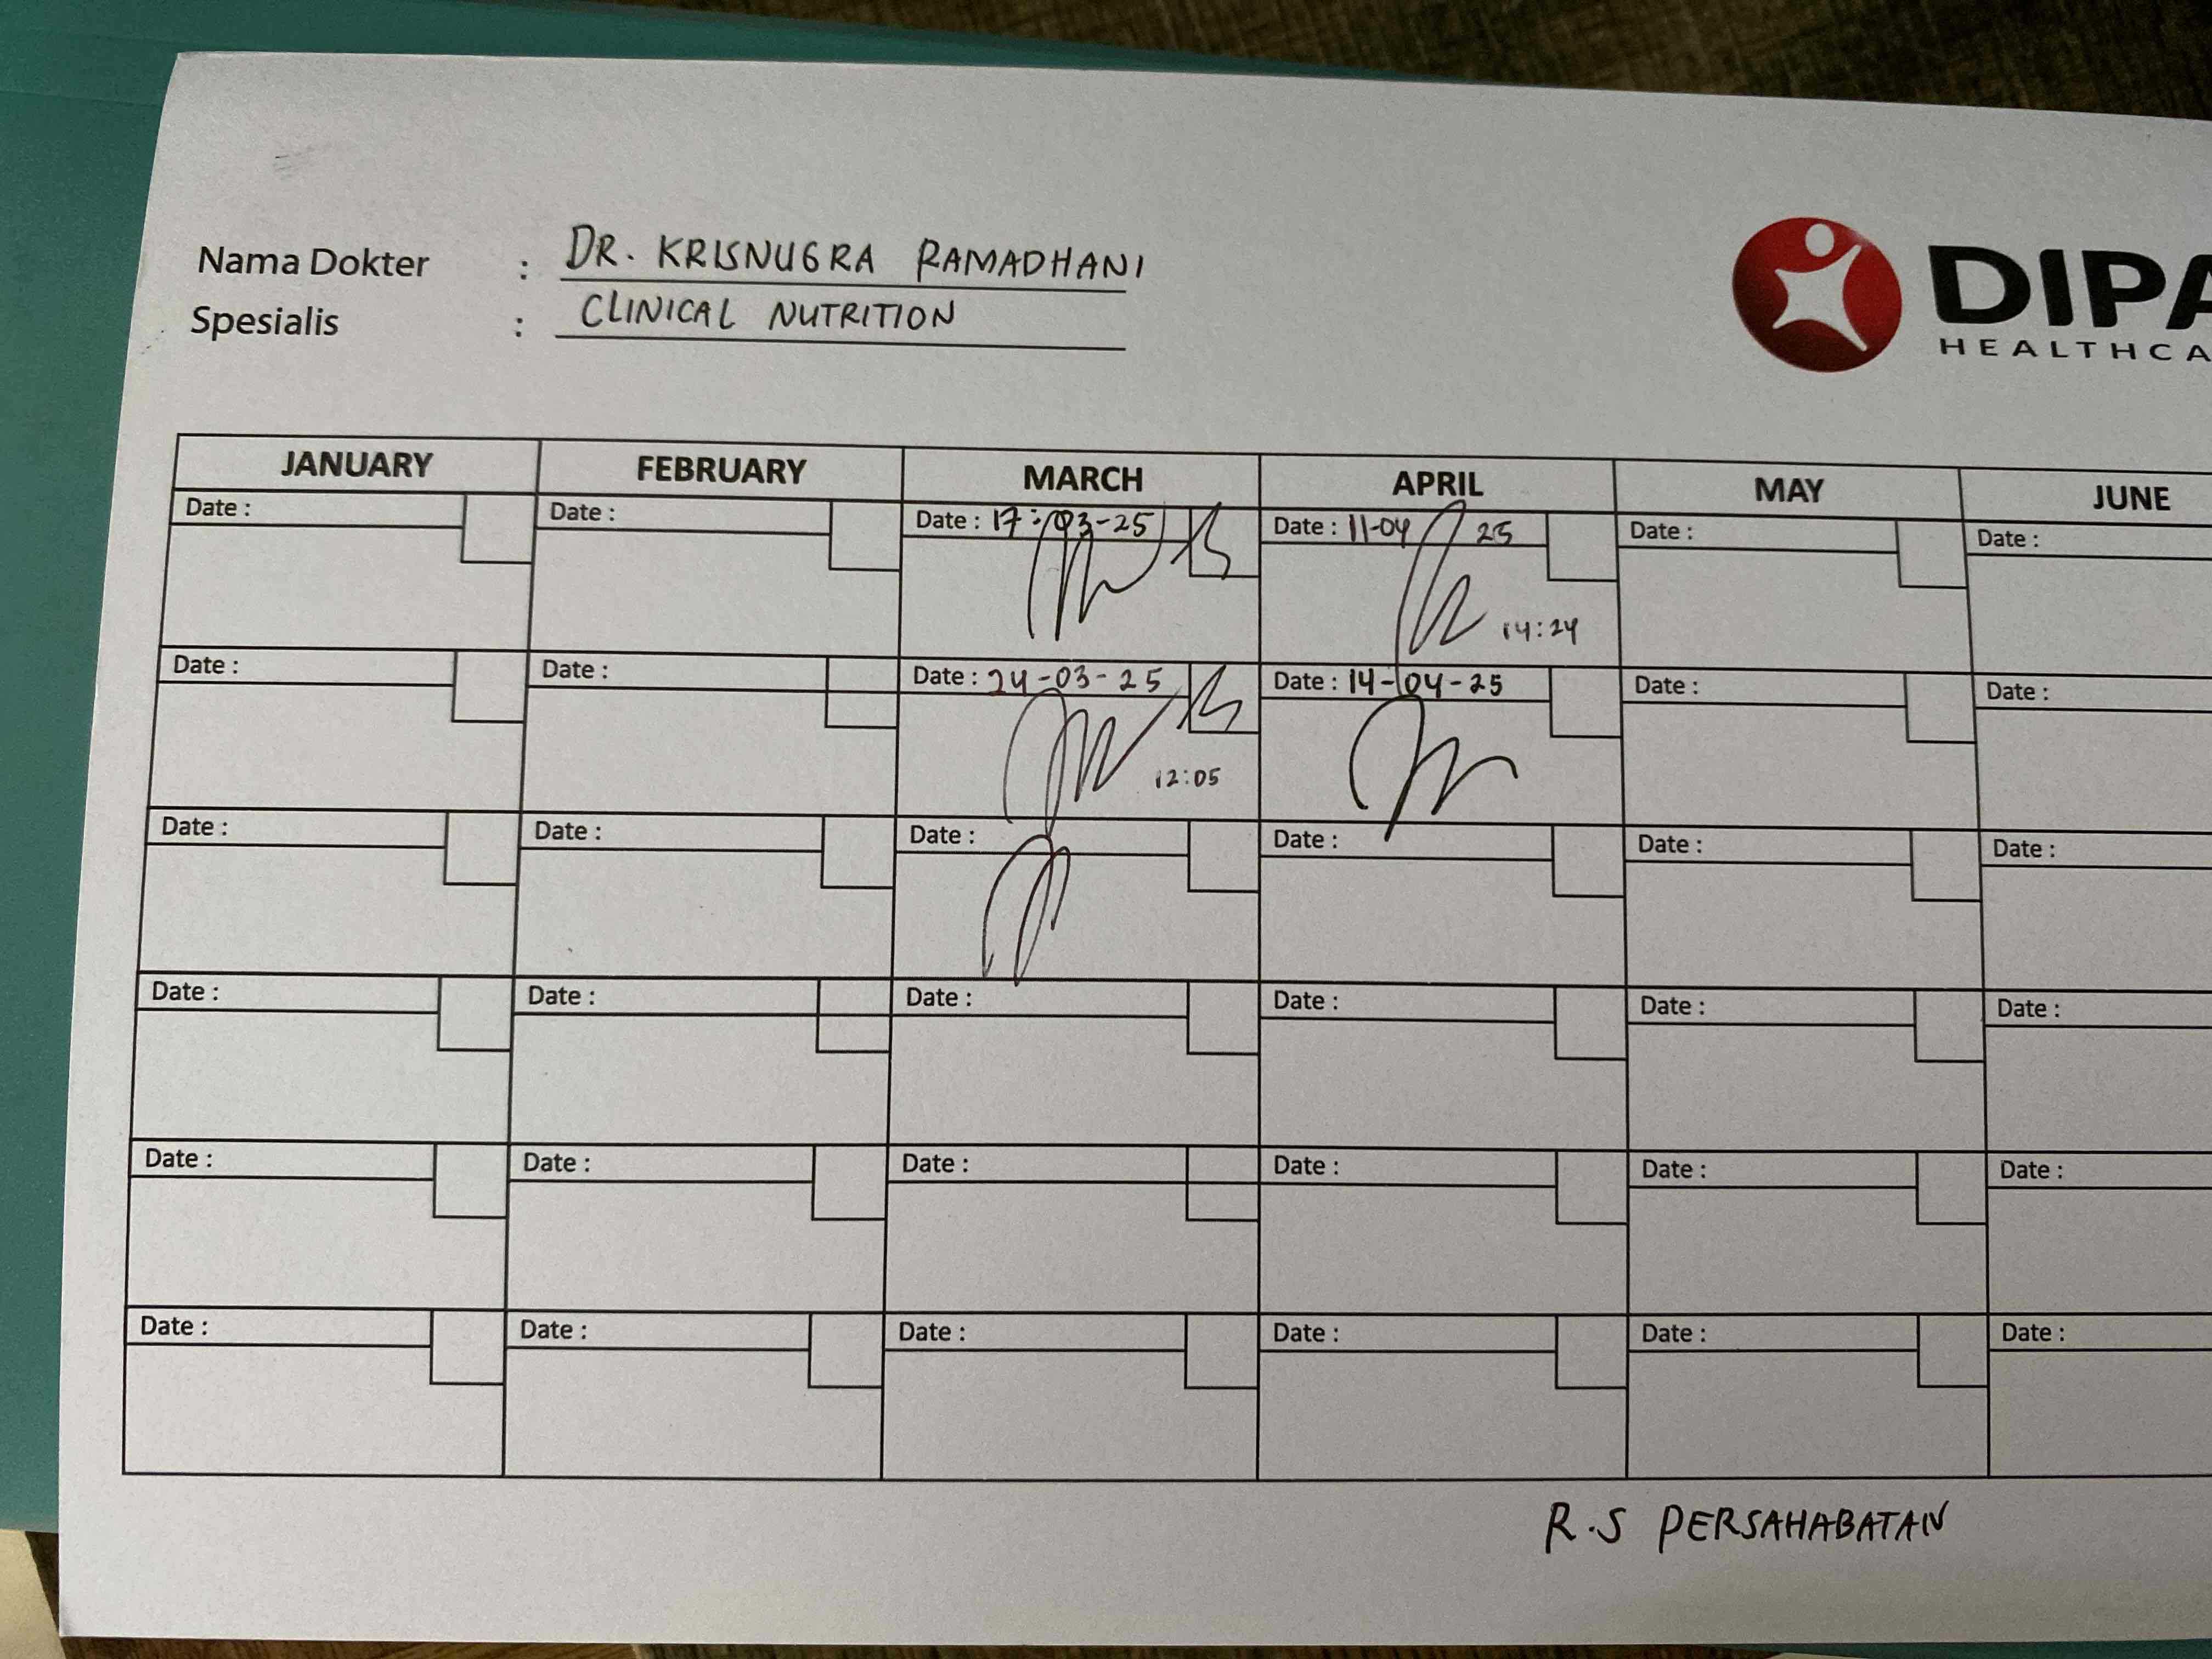 Nama Dokter : DR. KRISNUGRA RAMADHANI
Spesialis : CLINICAL NUTRITION
DIPA
HEALTHCA
JANUARY FEBRUARY MARCH APRIL MAY JUNE
Date : Date : Date : 17-03-25 Date : 11-04 25 Date : Date :
14:24
Date : Date : Date : 24-03-25 Date : 14-04-25 Date : Date :
12:05
Date : Date : Date : Date : Date : Date :
Date : Date : Date : Date : Date : Date :
Date : Date : Date : Date : Date : Date :
Date : Date : Date : Date : Date : Date :
R.S PERSAHABATAN